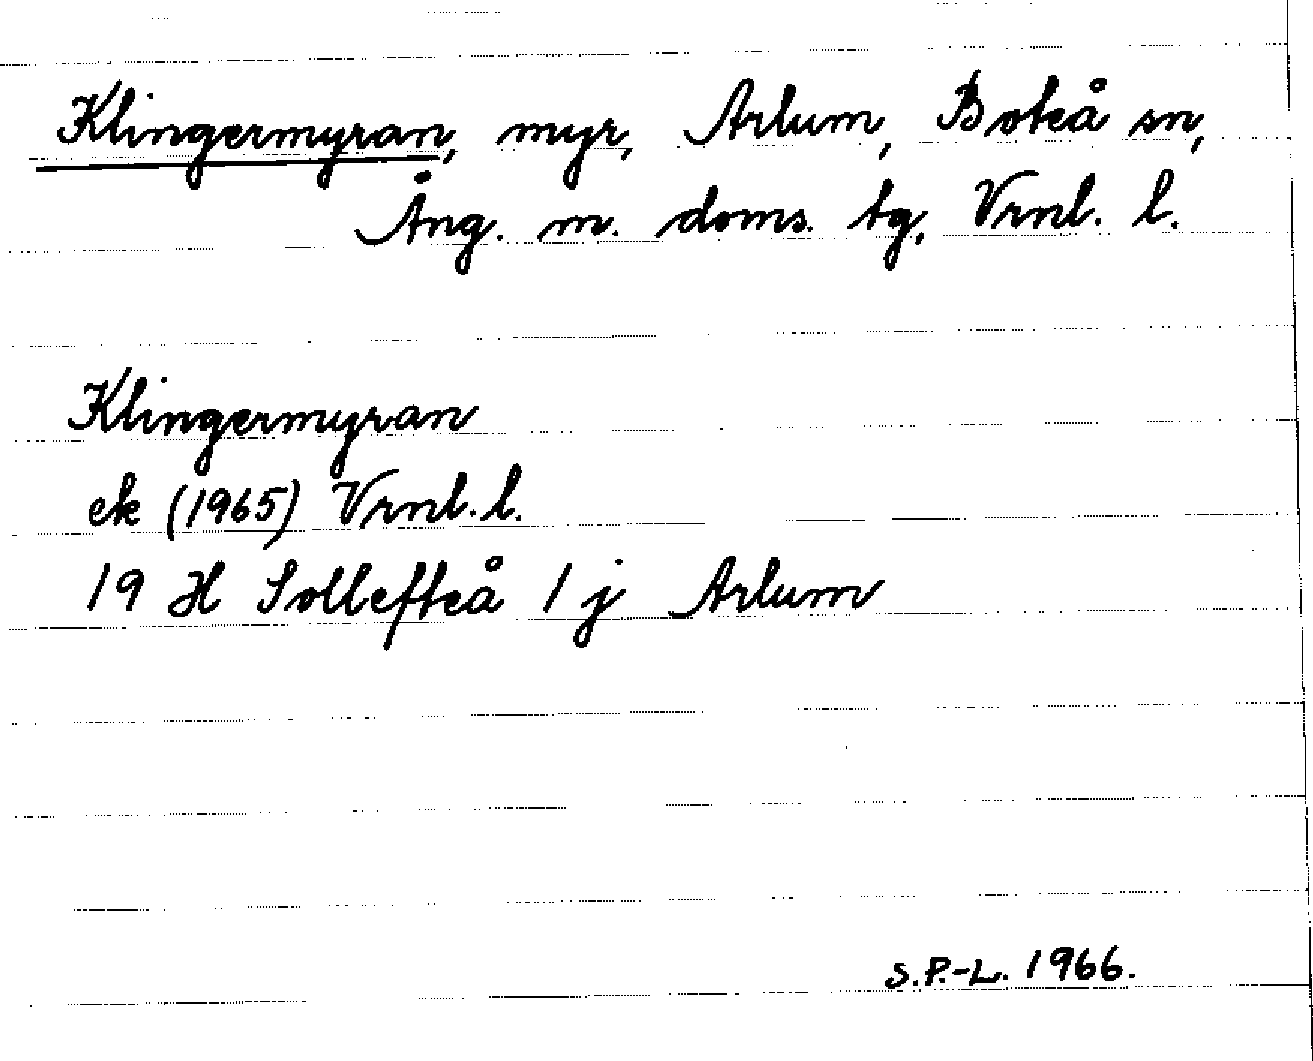 Klingermyran, myr, Arlum, Boteå sn,
Ång. m. doms. tg, Vrnl. l.
Klingermyran
ek (1965) Vrnl. l.
19 H Sollefteå 1 j Arlum
S.P.-L. 1966.